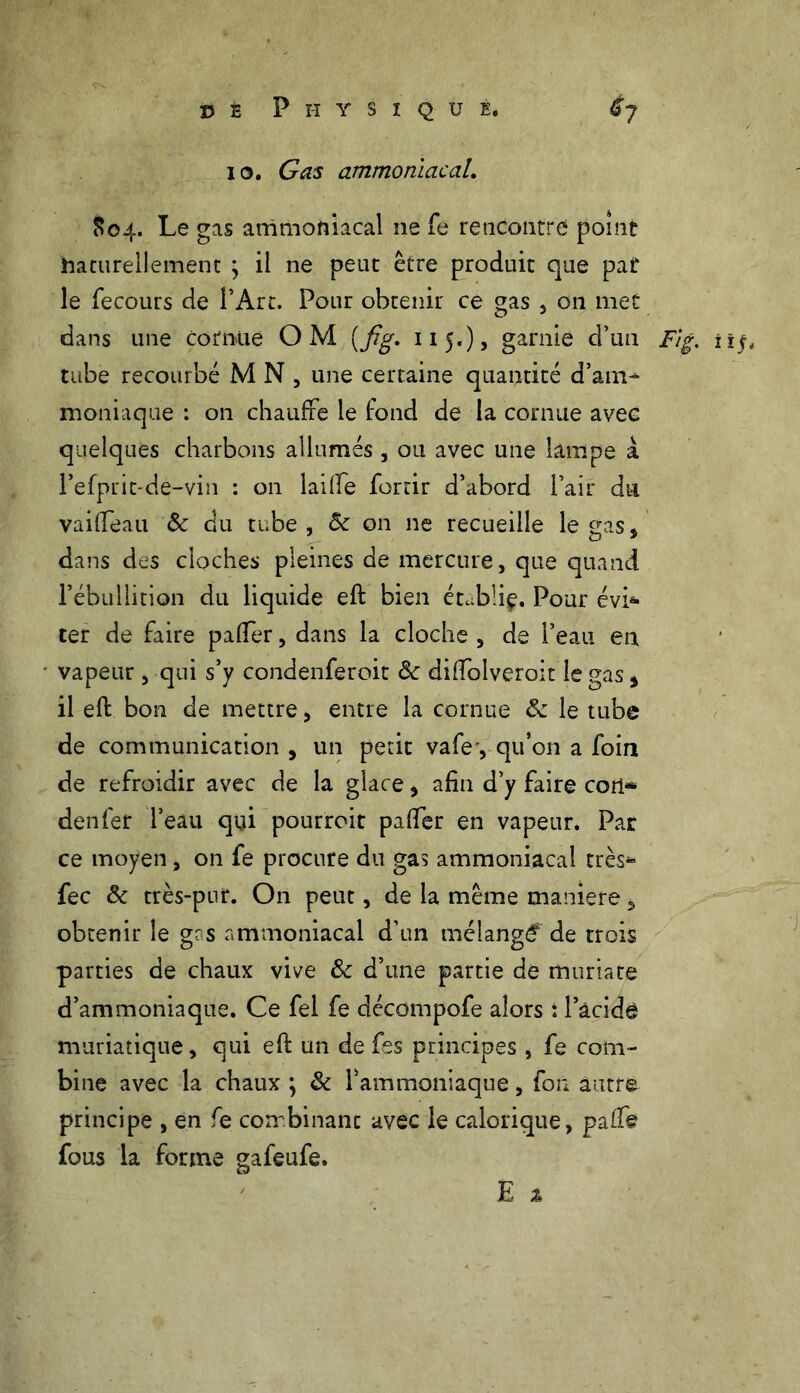 DE PHYSIQUE. 67
10. Gas ammoniacal.
804. Le gas ammoniacal ne ſe rencontre point
naturellement ; il ne peut être produit que par
le ſecours de l'Art. Pour obtenir ce gas, on met
dans une cornue O M (fig. 115.), garnie d'un Fig. 115.
tube recourbé M N, une certaine quantité d'am-
moniaque : on chauffe le fond de la cornue avec
quelques charbons allumés, ou avec une lampe à
l'eſprit-de-vin : on laiſſe ſortir d'abord l'air du
vaiſſeau & du tube, & on ne recueille le gas,
dans des cloches pleines de mercure, que quand
l'ébullition du liquide eſt bien établie. Pour évi-
ter de faire paſſer, dans la cloche, de l'eau en
vapeur, qui s'y condenſeroit & diſſolveroit le gas,
il eſt bon de mettre, entre la cornue & le tube
de communication, un petit vaſe, qu'on a ſoin
de refroidir avec de la glace, afin d'y faire con-
denſer l'eau qui pourroit paſſer en vapeur. Par
ce moyen, on ſe procure du gas ammoniacal très-
ſec & très-pur. On peut, de la même maniere,
obtenir le gas ammoniacal d'un mélange de trois
parties de chaux vive & d'une partie de muriate
d'ammoniaque. Ce ſel ſe décompoſe alors : l'acide
muriatique, qui eſt un de ſes principes, ſe com-
bine avec la chaux ; & l'ammoniaque, ſon autre
principe, en ſe combinant avec le calorique, paſſe
ſous la forme gaſeuſe.
E 2